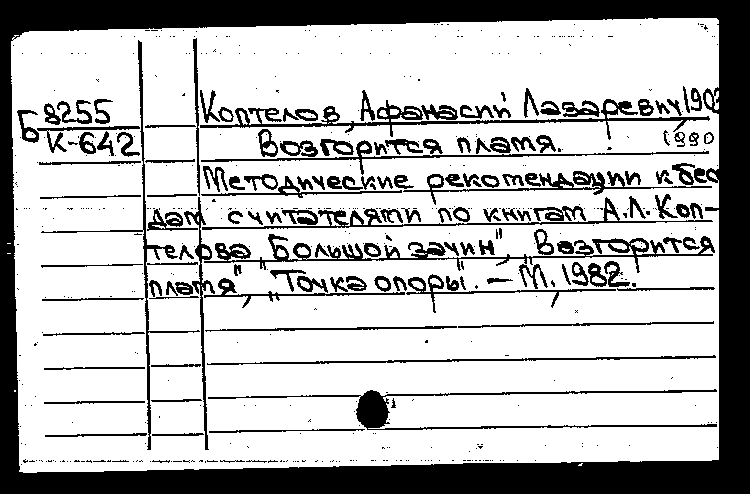 Б 8255
К-642
Коптелов, Афанасий Лазаревич, 1903
Возгорится пламя. 1990
Методические рекомендации к бес
дам с читателями по книгам А.Л. Коп-
телова „Большой зачин", „Возгорится
пламя", „Точка опоры". – М., 1982.